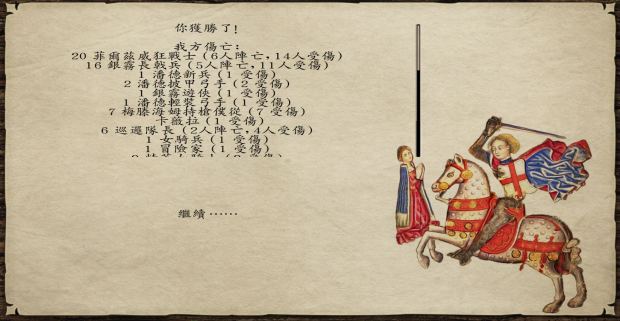 你獲勝了!
我方傷亡:
20 菲爾茲威狂戰士 (6人陣亡,14人受傷)
16 銀霧長戟兵 (5人陣亡,11人受傷)
1 潘德新兵 (1 受傷)
2 潘德披甲弓手 (2 受傷)
1 銀霧遊俠 (1 受傷)
1 潘德輕裝弓手 (1 受傷)
7 梅滕海姆持槍僕從 (7 受傷)
卡薇拉 (1 受傷)
6 巡邏隊長 (2人陣亡,4人受傷)
1 女騎兵 (1 受傷)
1 冒險家 (1 受傷)
繼續……